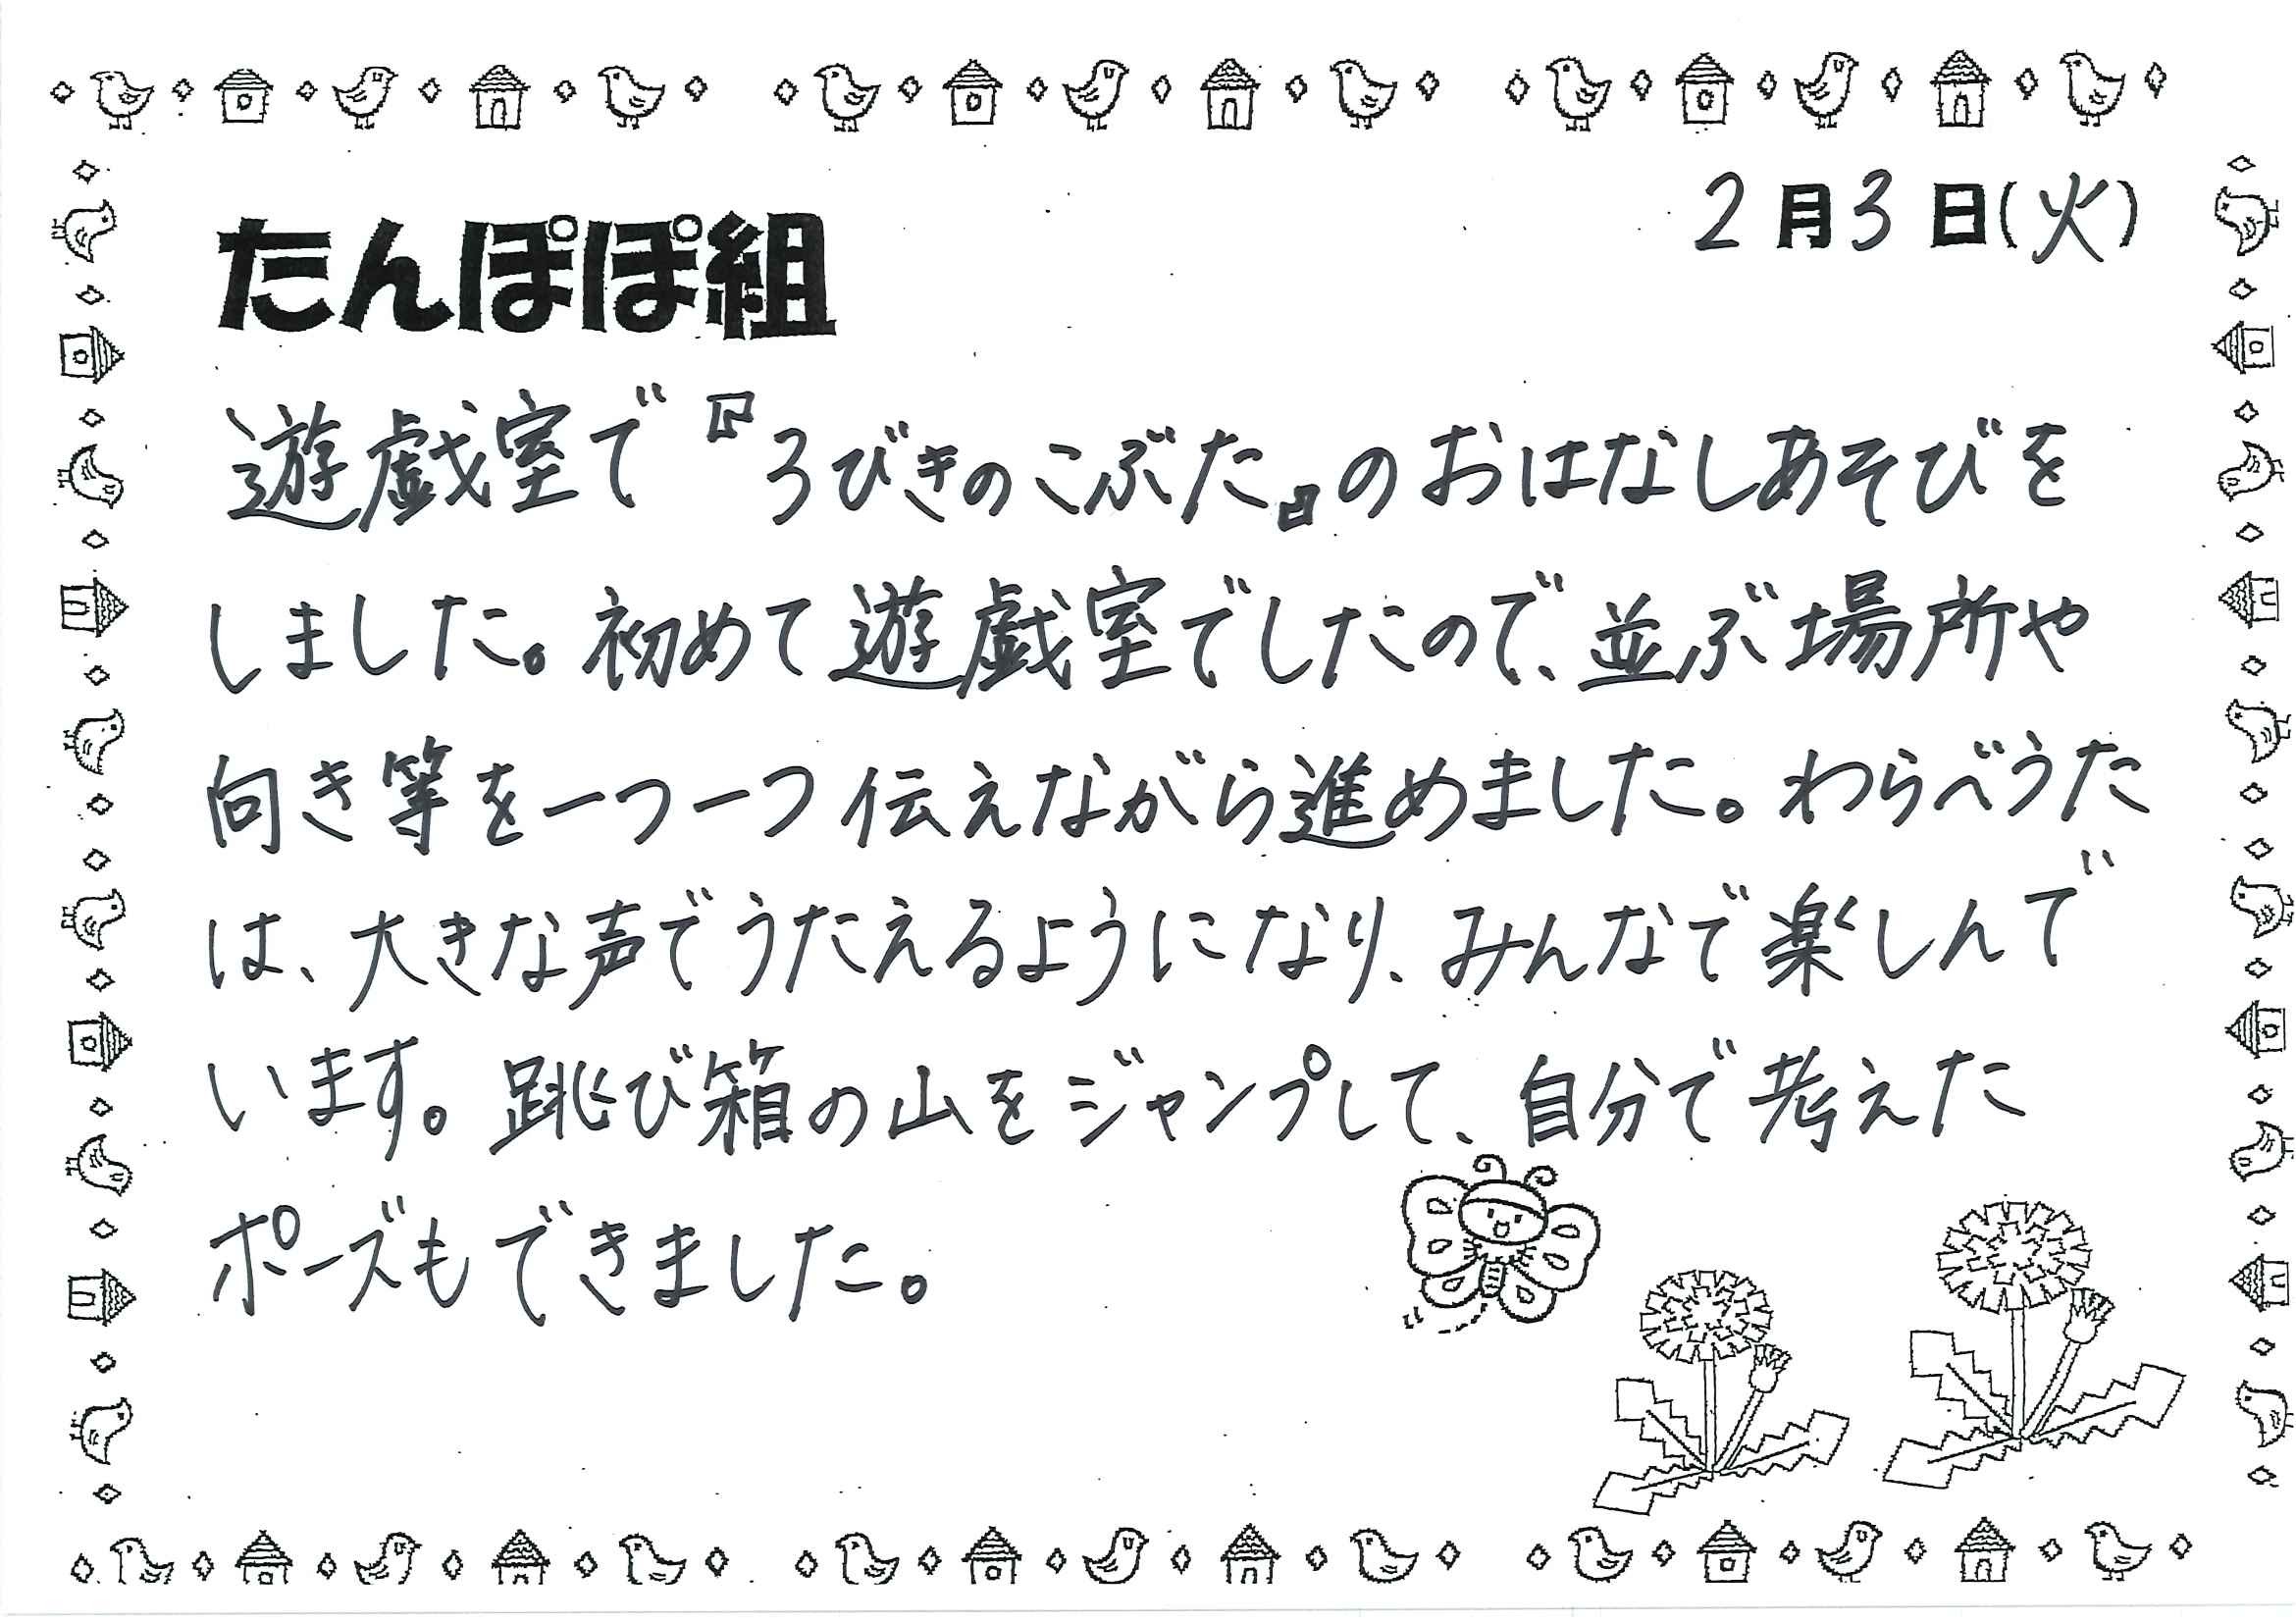 2月3日(火)
たんぽぽ組
遊戯室で『3びきのこぶた』のおはなしあそびを
しました。初めて遊戯室でしたので、並ぶ場所や
向き等を一つ一つ伝えながら進めました。わらべうた
は、大きな声でうたえるようになり、みんなで楽しんで
います。跳び箱の山をジャンプして、自分で考えた
ポーズもできました。